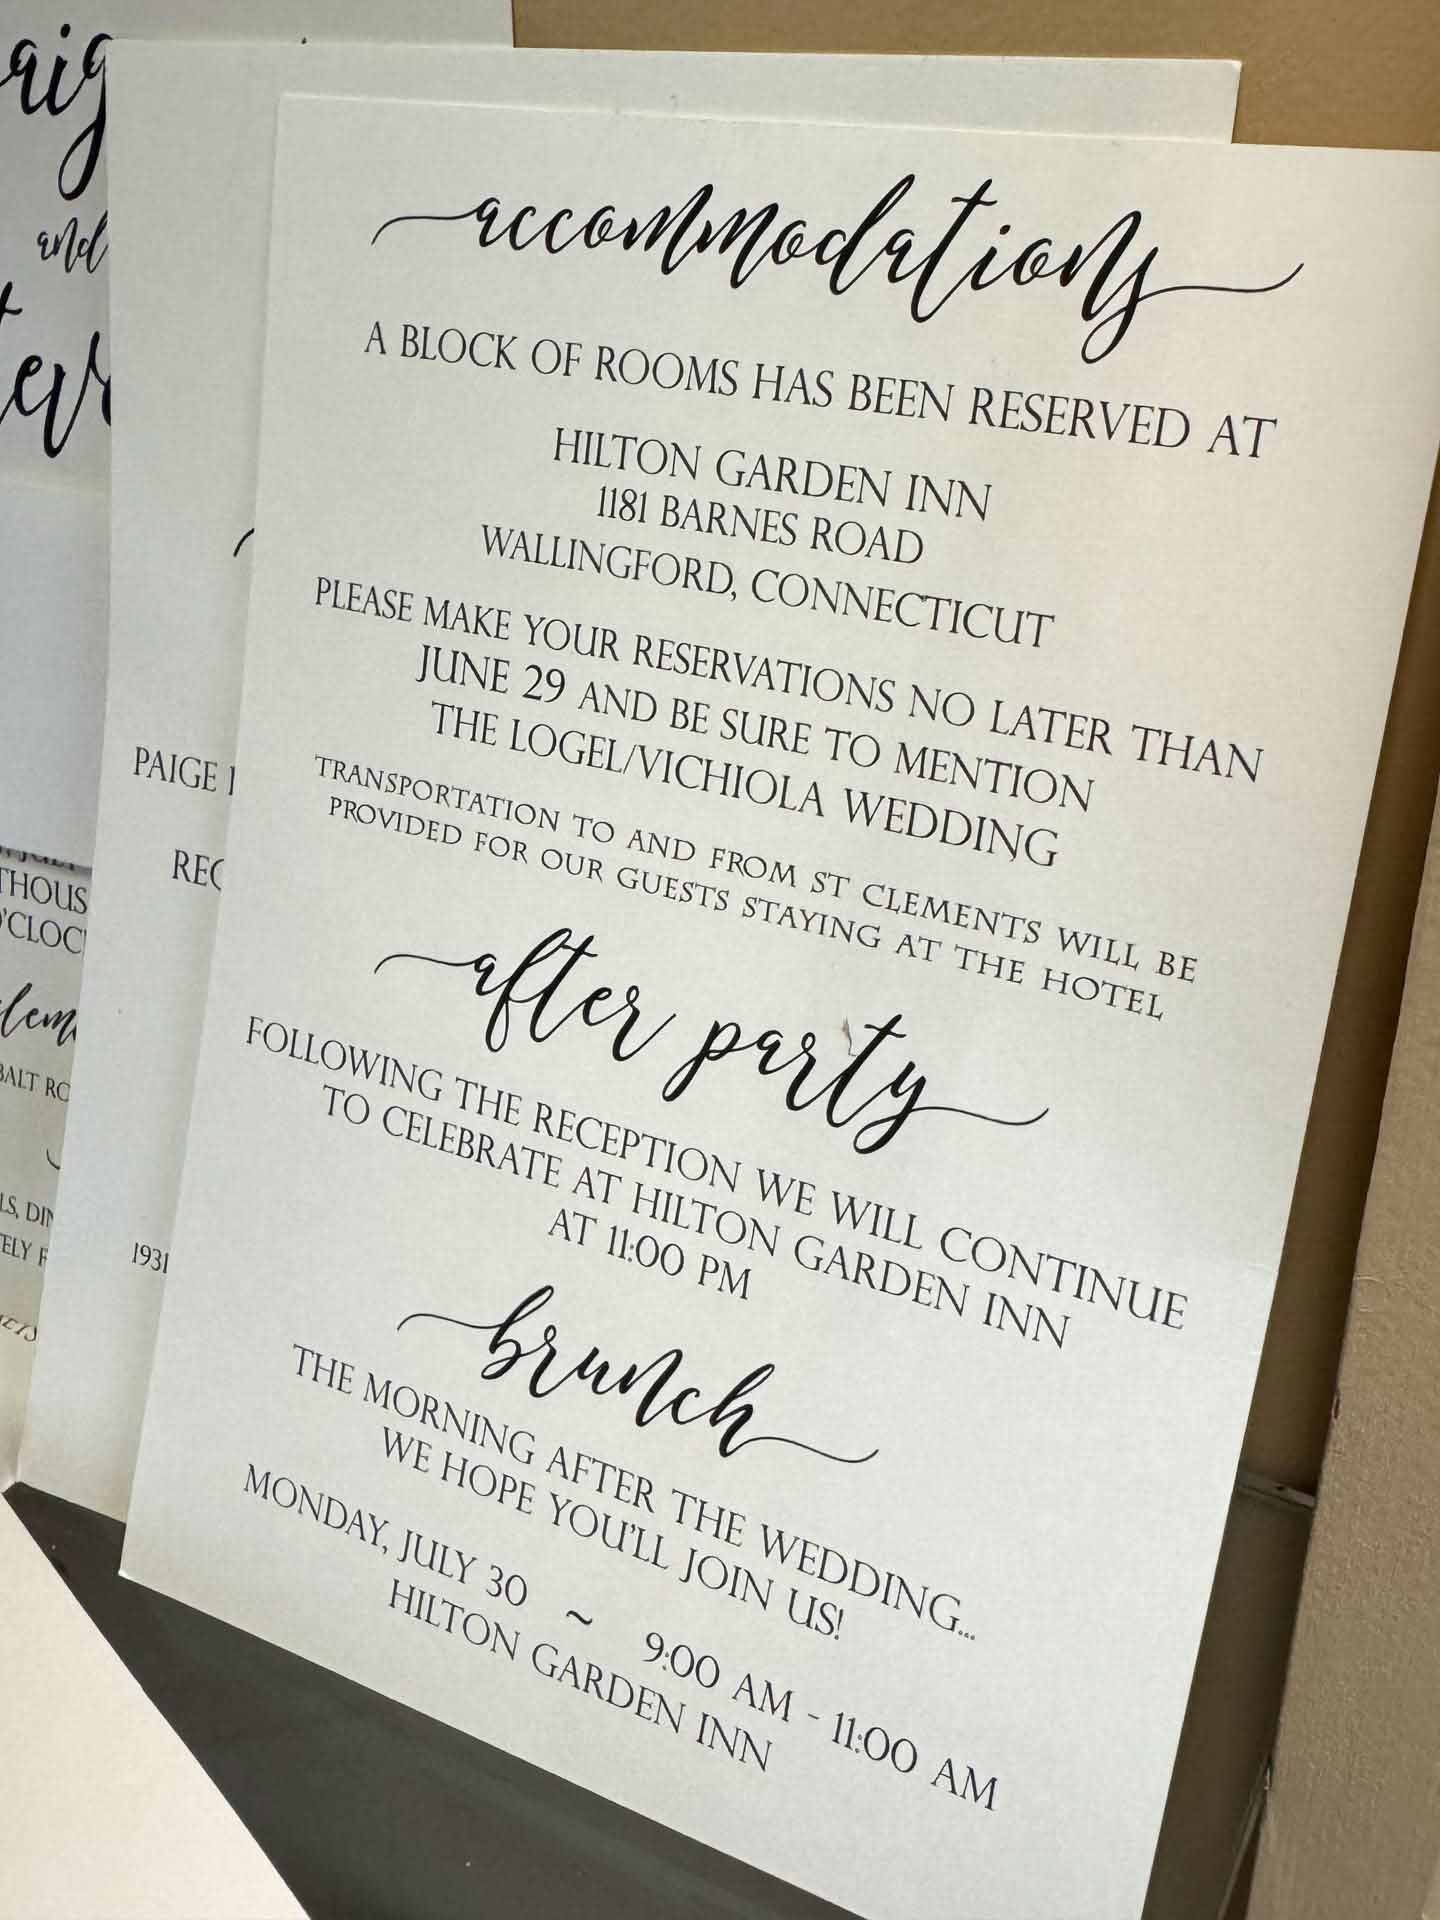 and
PAIGE
1931
accommodations
A BLOCK OF ROOMS HAS BEEN RESERVED AT
HILTON GARDEN INN
1181 BARNES ROAD
WALLINGFORD, CONNECTICUT
PLEASE MAKE YOUR RESERVATIONS NO LATER THAN
JUNE 29 AND BE SURE TO MENTION
THE LOGEL/VICHIOLA WEDDING
TRANSPORTATION TO AND FROM ST CLEMENTS WILL BE
PROVIDED FOR OUR GUESTS STAYING AT THE HOTEL
after party
FOLLOWING THE RECEPTION WE WILL CONTINUE
TO CELEBRATE AT HILTON GARDEN INN
AT 11:00 PM
brunch
THE MORNING AFTER THE WEDDING...
WE HOPE YOU'LL JOIN US!
MONDAY, JULY 30 ~ 9:00 AM - 11:00 AM
HILTON GARDEN INN